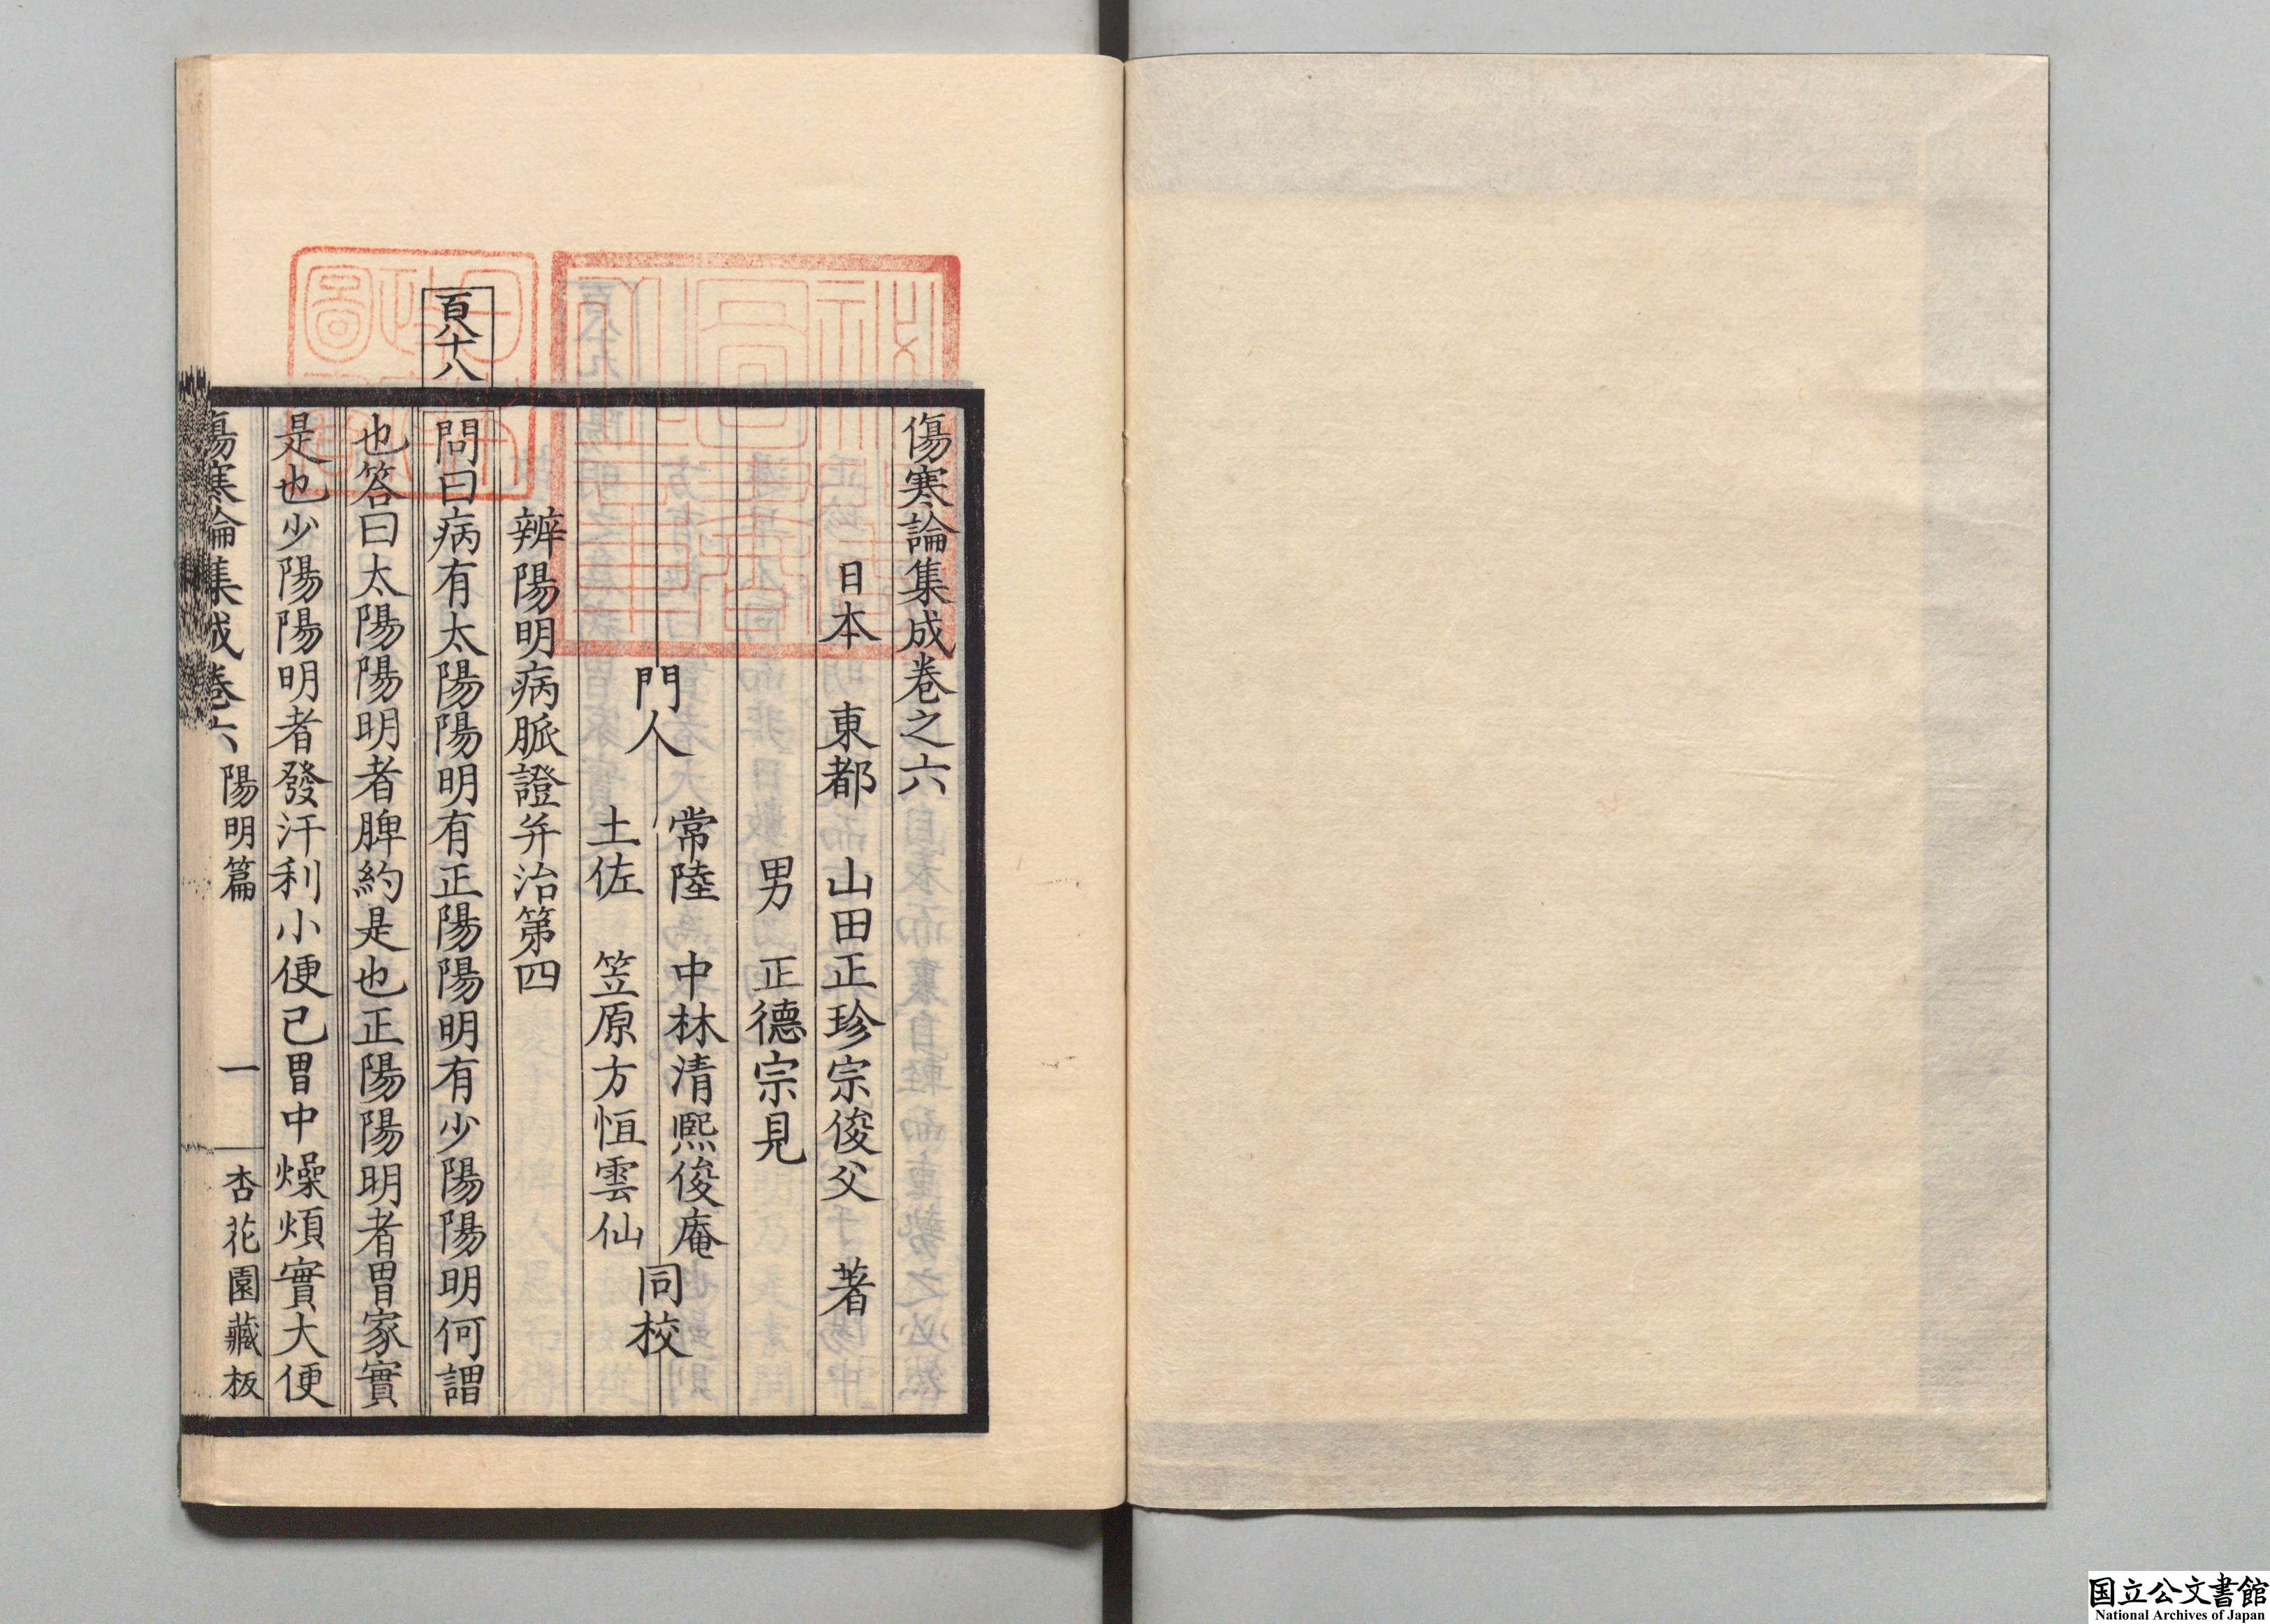 傷寒論集成卷之六
日本 東都 山田正珍宗俊父 著
男 正德宗見
門人 常陸 中林清熙俊庵
土佐 笠原方恒雲仙 同校
辨陽明病脈證并治第四
百八十八
問曰病有太陽陽明有正陽陽明有少陽陽明何謂
也答曰太陽陽明者脾約是也正陽陽明者胃家實
是也少陽陽明者發汗利小便已胃中燥煩實大便
傷寒論集成卷六 陽明篇 一 杏花園藏板
国立公文書館
National Archives of Japan